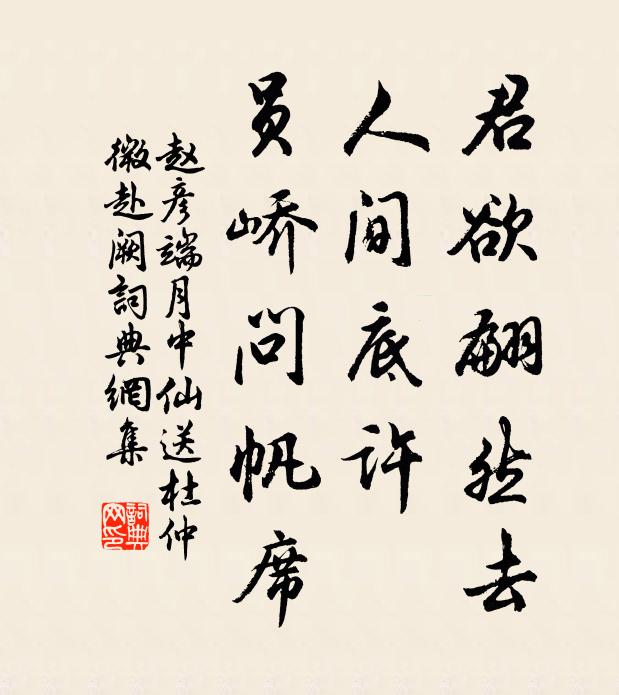 君欲翩然去
人间底许
员峤问帆席
赵彦端月中仙送杜仲
微赴阙词典网集
詞典
网印